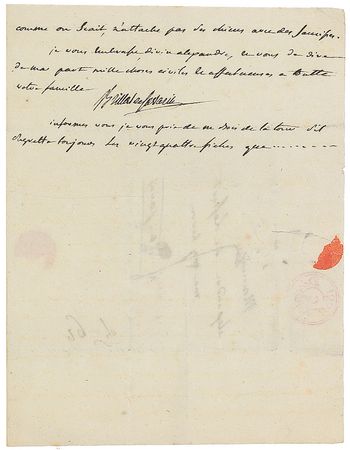 comme on Scait, n'attache pas des chiens avec des Saucisses.
je vous embrasse, divin alexandre, et vous de dire
de ma part mille choses civiles et affectueuses a toutte
votre famille
Brillat Savarin
informez vous je vous prie de de la tour S'il
regrette toujours Les vingt quatre fiches que